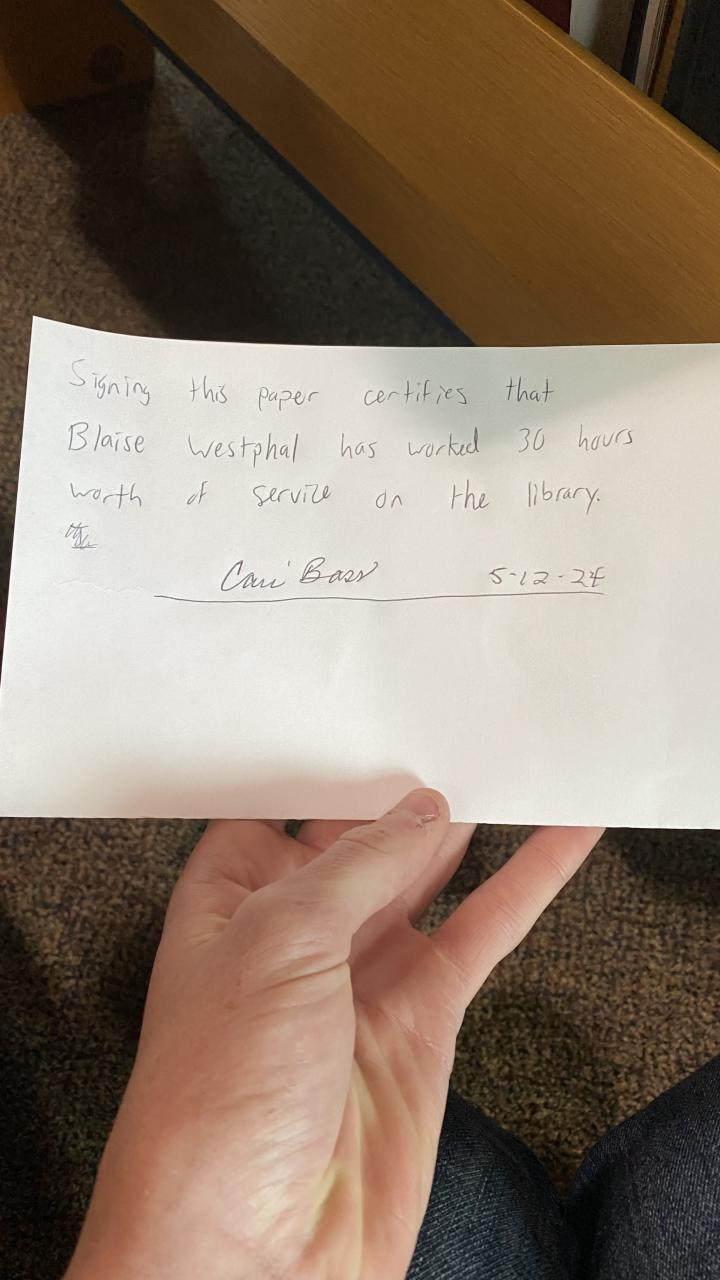 Signing this paper certifies that
Blaise Westphal has worked 30 hours
worth of service on the library.
Cari Bass 5-12-24